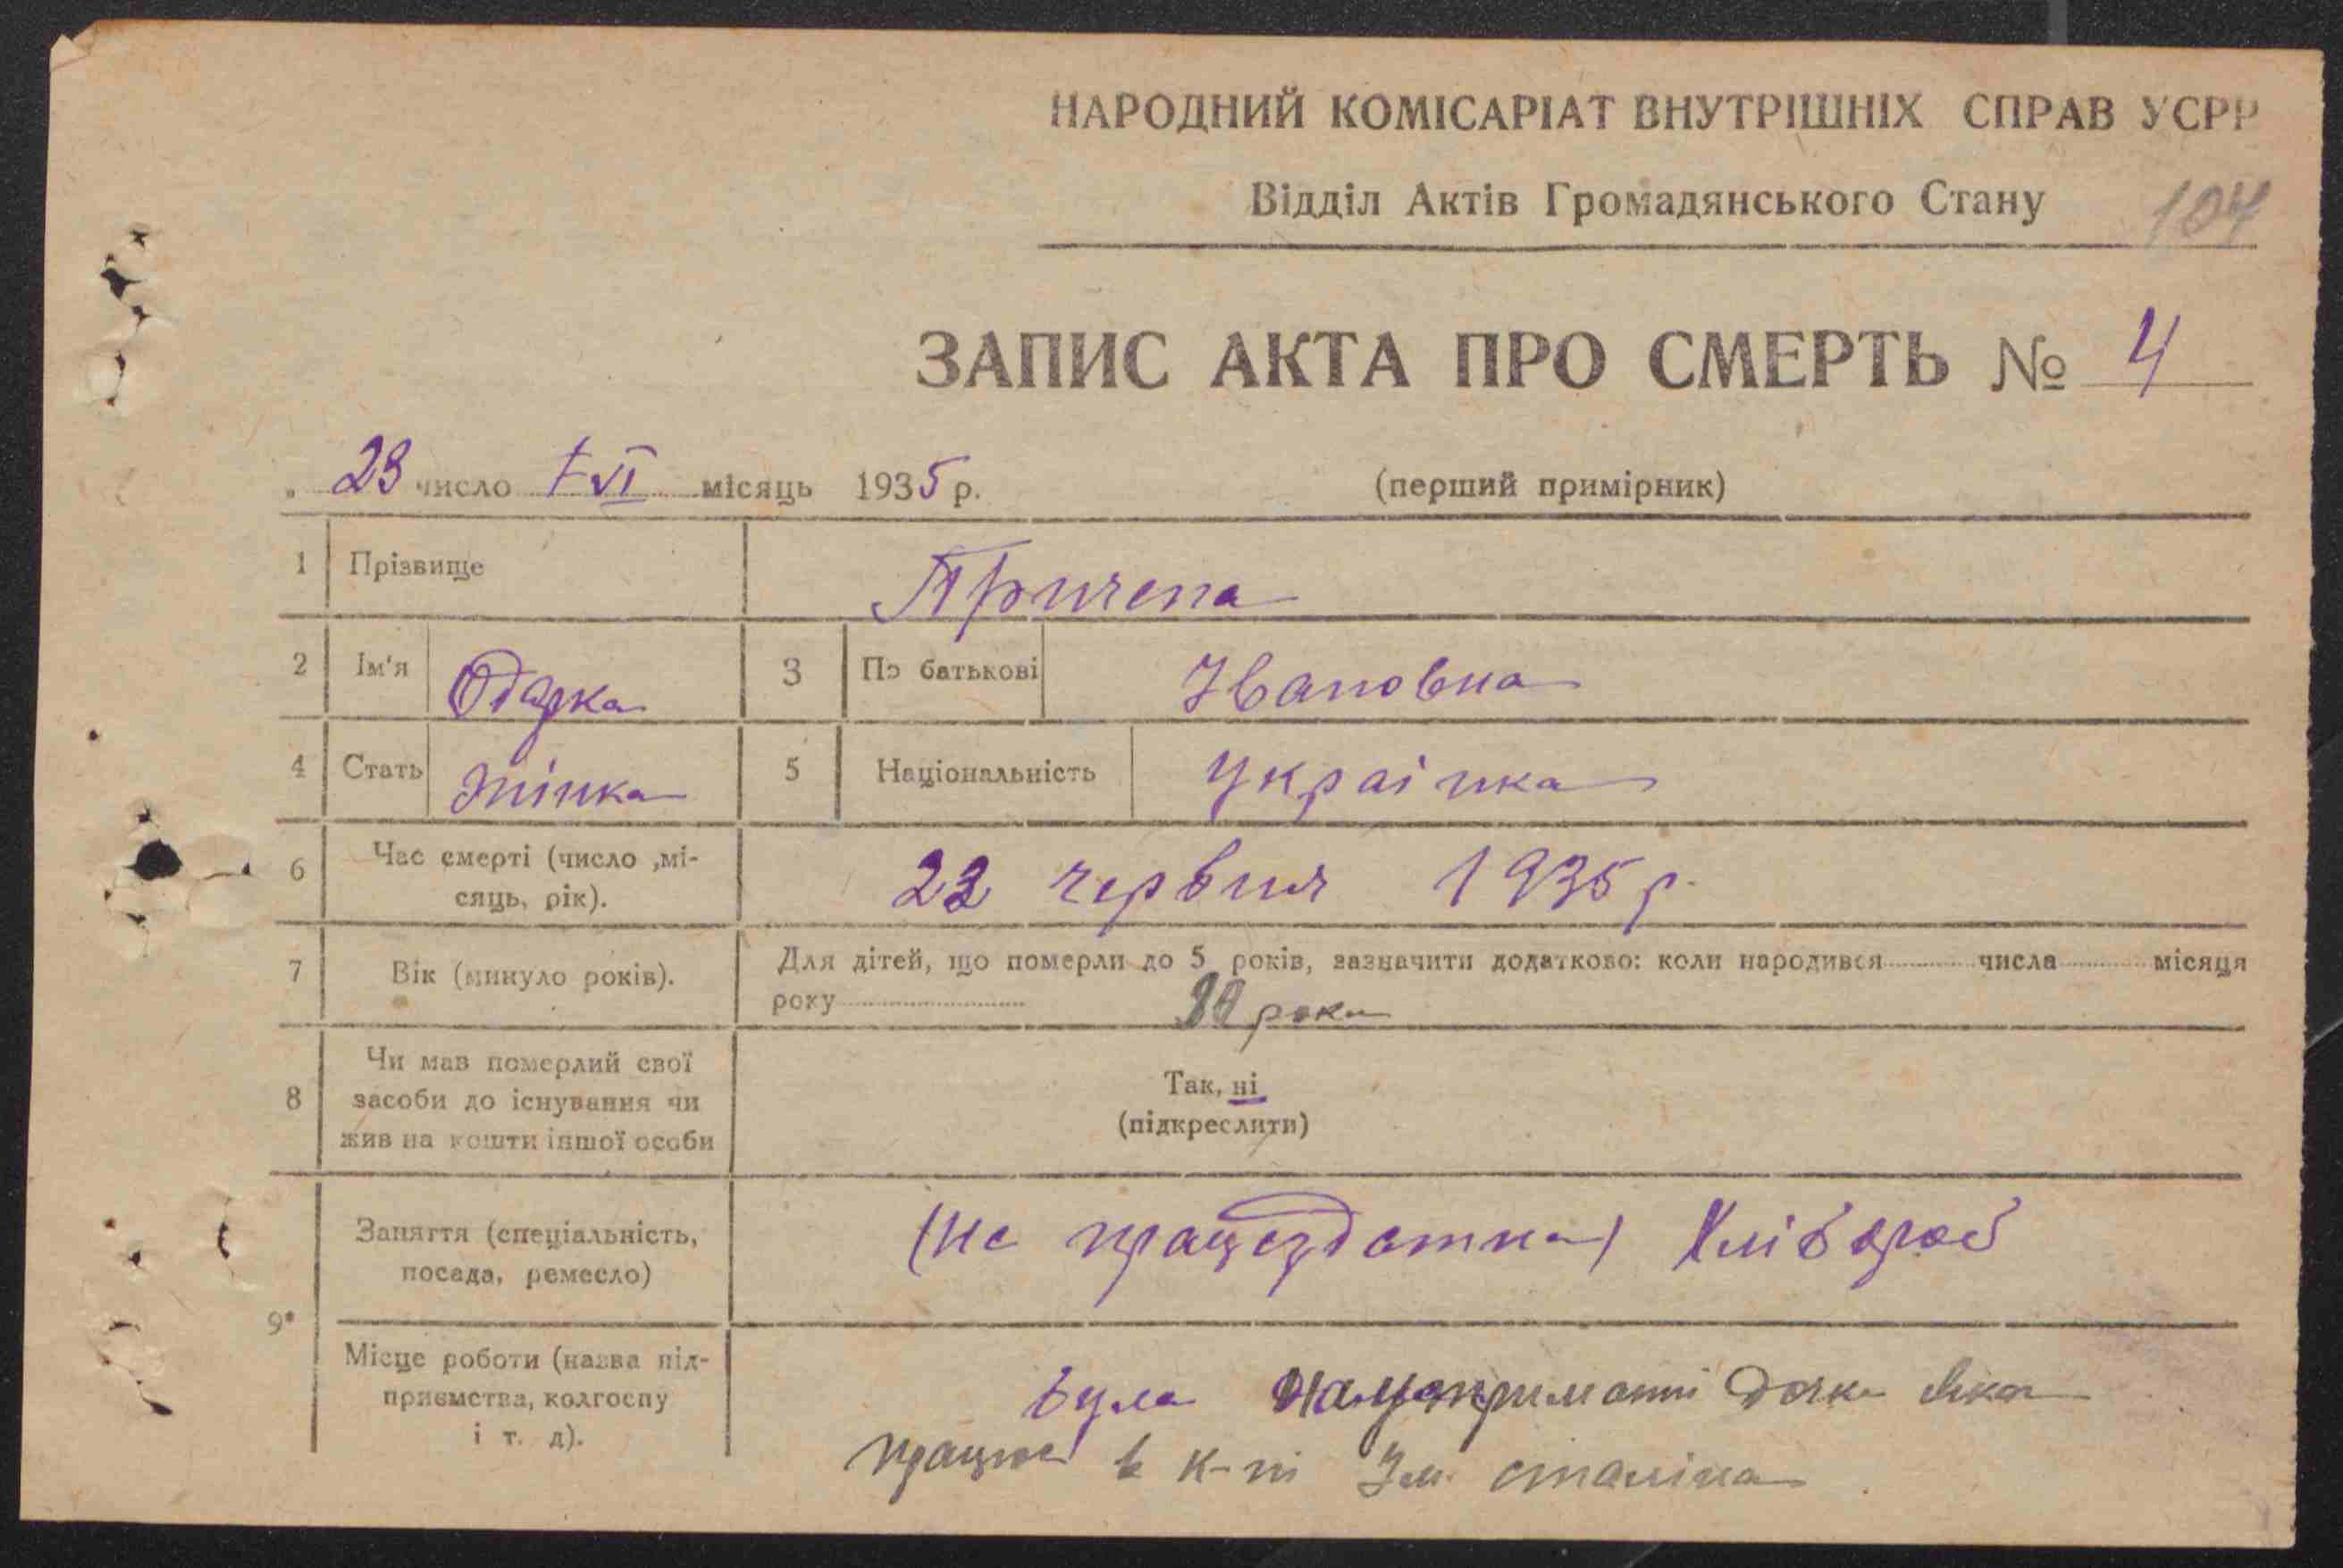 НАРОДНИЙ КОМІСАРІАТ ВНУТРІШНІХ СПРАВ УСРР
Відділ Актів Громадянського Стану 104
ЗАПИС АКТА ПРО СМЕРТЬ № 4
„ 23 число VI місяць 1935 р. (перший примірник)
1 Прізвище Причепа
2 Ім'я Одарка 3 По батькові Івановна
4 Стать жінка 5 Національність Украінка
6 Час смерті (число ,мі-
сяць, рік). 22 червня 1935 р.
7 Вік (минуло років). Для дітей, що померли до 5 років, зазначити додатково: коли народився числа місяця
року роки
8 Чи мав померлий свої
засоби до існування чи
жив на кошти іншої особи
Так, ні
(підкреслити)
9*
Заняття (спеціальність,
посада, ремесло)
(не працездатна) Хлібороб
Місце роботи (назва під-
приємства, колгоспу
і т. д).
була на утриманні дочки яка
працює в к-пі Ім. сталіна